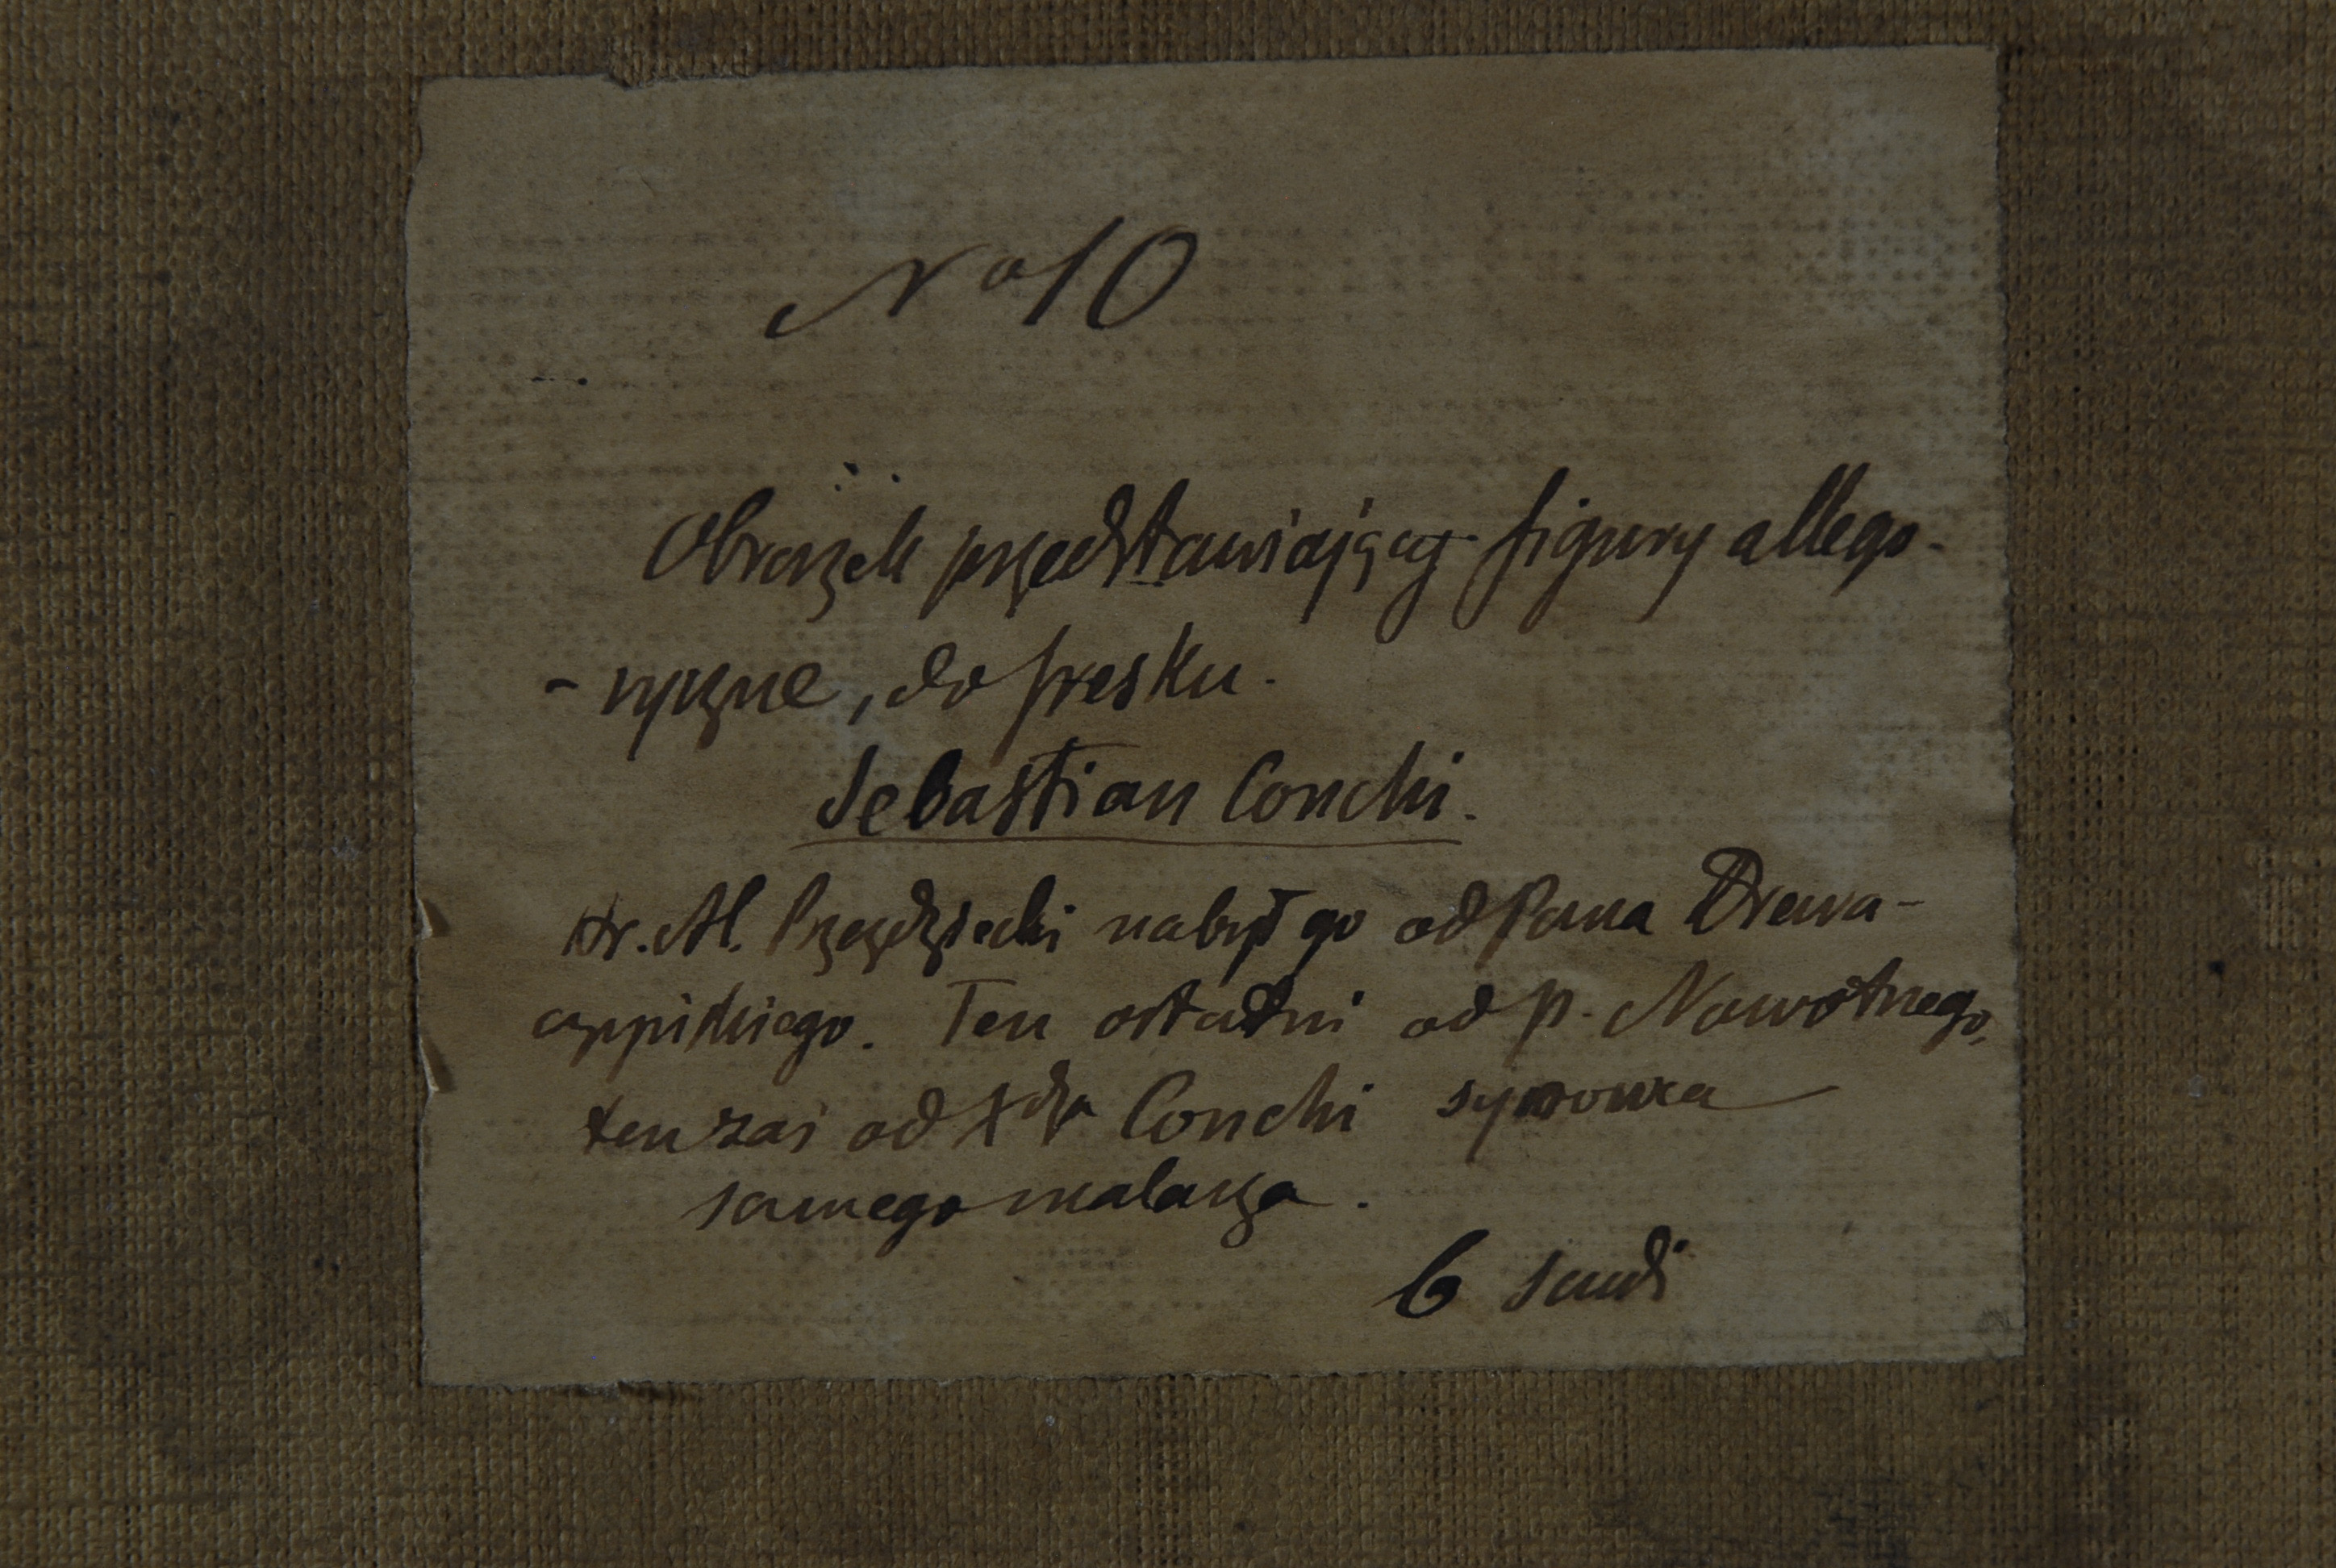 No 10
Obrazek przedstawiający figury allego-
-ryczne, do fresku.
Sebastian Conchi.
Hr. Al. Przezdziecki nabył go od Pana Drewa-
czyńskiego. Ten ostatni od p. Nawotnego,
ten zaś od Xdza Conchi synowca
samego malarza.
6 scudi